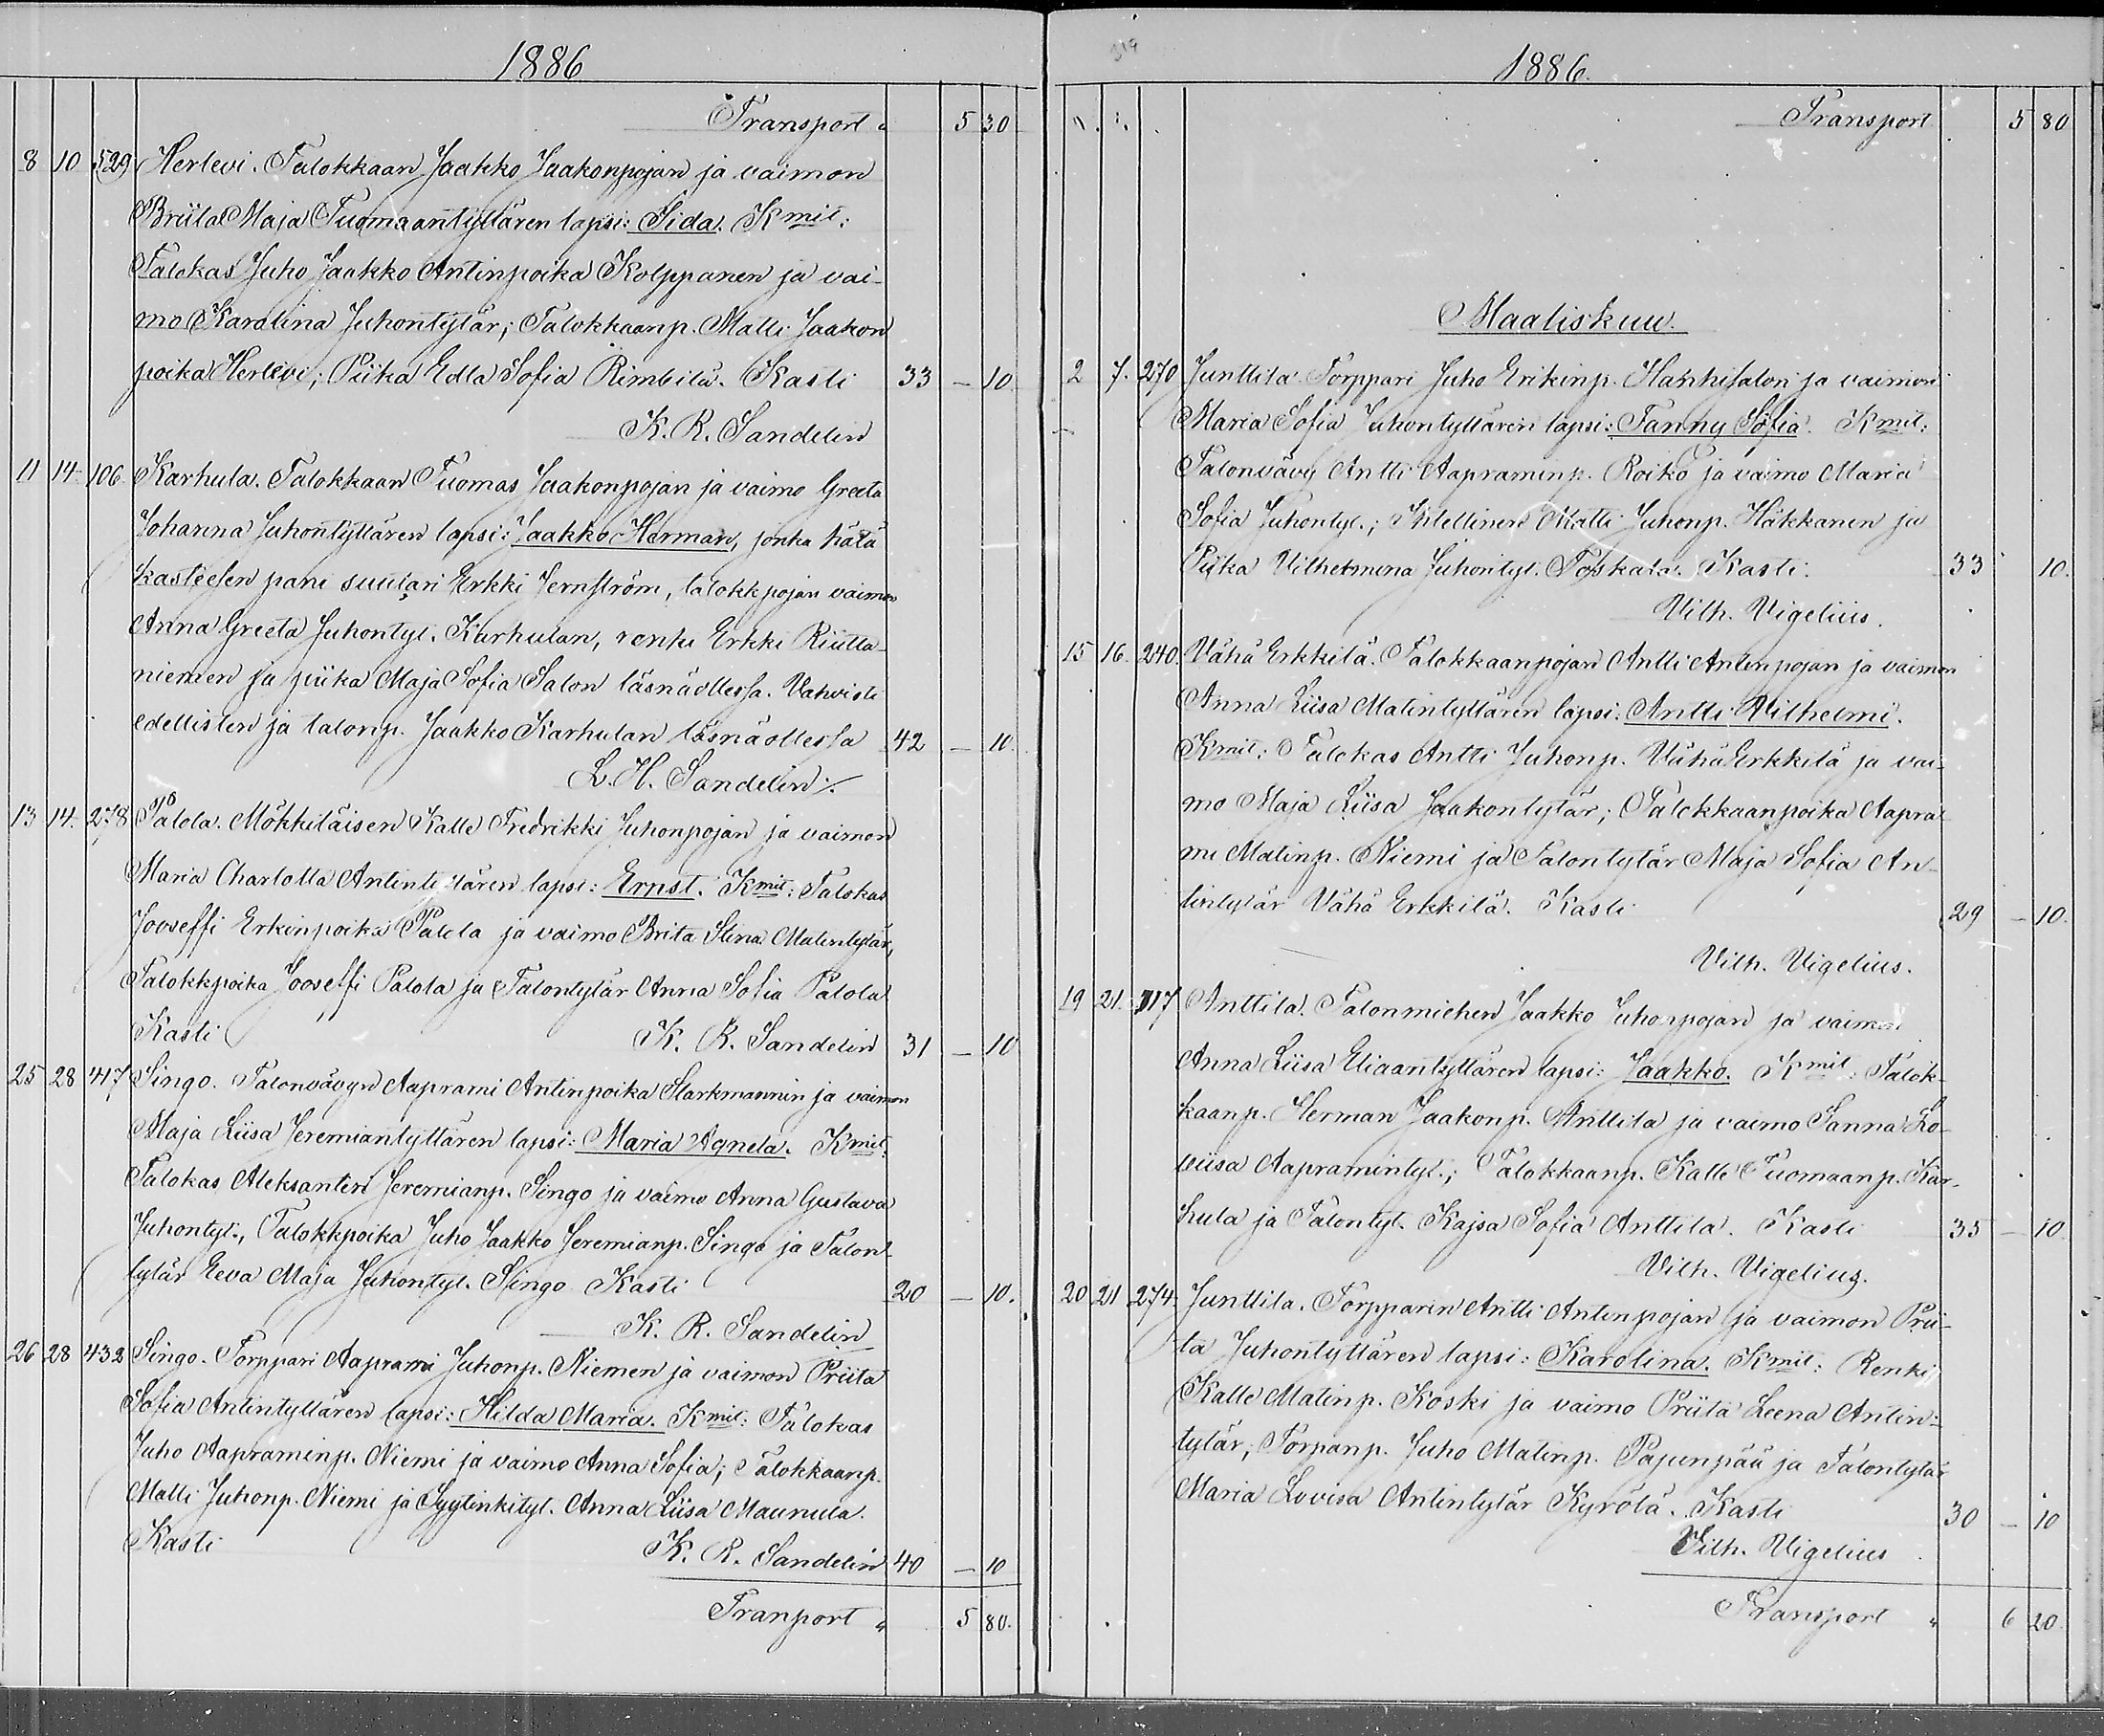 1886
Transport " 5 30
8 10 529 Herlevi. Talokkaan Jaakko Jaakonpojan ja vaimon
Briita Maja Tuomaantyttären lapsi: Sida. Kmit:
Talokas Juho Jaakko Antinpoika Kolppanen ja vai-
mo Karolina Juhontytär; Talokkaanp. Matti Jaakon
poika Herlevi; Piika Edla Sofia Rimbilä. Kasti 33 — 10.
K. R. Sandelin
11 14 106. Karhula. Talokkaan Tuomas Jaakonpojan ja vaimo Greeta
Johanna Juhontyttären lapsi: Jaakko Herman, jonka hätä
kasteesen pani suutari Erkki Jernström, talokkpojan vaimon
Anna Greeta Juhontyt. Karhulan, renki Erkki Riutta-
niemen ja piika Maja Sofia Salon läsnäollessa. Vahvisti
edellisten ja talonp. Jaakko Karhulan läsnäollessa 42 — 10.
L. H. Sandelin
13 14. 278 Palola. Mökkiläisen Kalle Fredrikki Juhonpojan ja vaimon
Maria Charlotta Antintyttären lapsi: Ernst. Kmit: Talokas
Jooseffi Erkinpoika Palola ja vaimo Brita Stina Matintytär,
Talokkpoika Jooseffi Palola ja Talontytär Anna Sofia Palola
Kasti K. R. Sandelin 31 — 10
25 28 417 Singo. Talonvävyn Aaprami Antinpoika Starkmannin ja vaimon
Maja Liisa Jeremiantyttären lapsi: Maria Agneta. Kmit.
Talokas Aleksanteri Jeremianp. Singo ja vaimo Anna Gustava
Juhontyt., Talokkpoika Juho Jaakko Jeremianp. Singo ja Talon
tytär Eeva Maja Juhontyt. Singo Kasti 20 — 10.
K. R. Sandelin
26 28 432 Singo. Torppari Aaprami Juhonp. Niemen ja vaimon Priita
Sofia Antintyttären lapsi: Hilda Maria. Kmit: Talokas
Juho Aapraminp. Niemi ja vaimo Anna Sofia; Talokkaanp.
Matti Juhonp. Niemi ja Syytinkityt. Anna Liisa Maunula.
Kasti K. R. Sandelin 40 — 10
Tranport " 5 80.
1886.
Transport 5 80
Maaliskuu.
2 7. 270 Junttila. Torppari Juho Erikinp. Hanhisalon ja vaimon
Maria Sofia Juhontyttären lapsi: Fanny Sofia. Kmit:
Talonvävy Antti Aapraminp. Roiko ja vaimo Maria
Sofia Juhontyt.; Itsellinen Matti Juhonp. Häkkanen ja
Piika Vilhelmina Juhontyt. Toskala. Kasti. 33 10.
Vilh. Vigelius.
15 16. 240. Vähä Erkkilä. Talokkaanpojan Antti Antinpojan ja vaimon
Anna Liisa Matintyttären lapsi: Antti Vilhelmi.
Kmit: Talokas Antti Juhonp. Vähä Erkkilä ja vai-
mo Maja Liisa Jaakontytär; Talokkaanpoika Aapra-
mi Matinp. Niemi ja Talontytär Maja Sofia An-
tintytär Vähä Erkkilä. Kasti 29 — 10.
Vilh. Vigelius.
19 21. 117 Anttila. Talonmiehen Jaakko Juhonpojan ja vaimon
Anna Liisa Eliaantyttären lapsi: Jaakko. Kmit: Talok-
kaanp. Herman Jaakonp. Anttila ja vaimo Sanna Lo-
viisa Aapramintyt.; Talokkaanp. Kalle Tuomaanp. Kar-
hula ja Talontyt. Kajsa Sofia Anttila. Kasti 35 — 10
Vilh. Vigelius.
20 21 274. Junttila. Torpparin Antti Antinpojan ja vaimon Prii-
ta Juhontyttären lapsi: Karolina. Kmit: Renki
Kalle Matinp. Koski ja vaimo Priita Leena Antin-
tytär; Torpanp. Juho Matinp. Pajunpää ja Talontytär
Maria Lovisa Antintytär Kyrölä. Kasti 30 — 10
Vilh. Vigelius
Transport " 6 20.